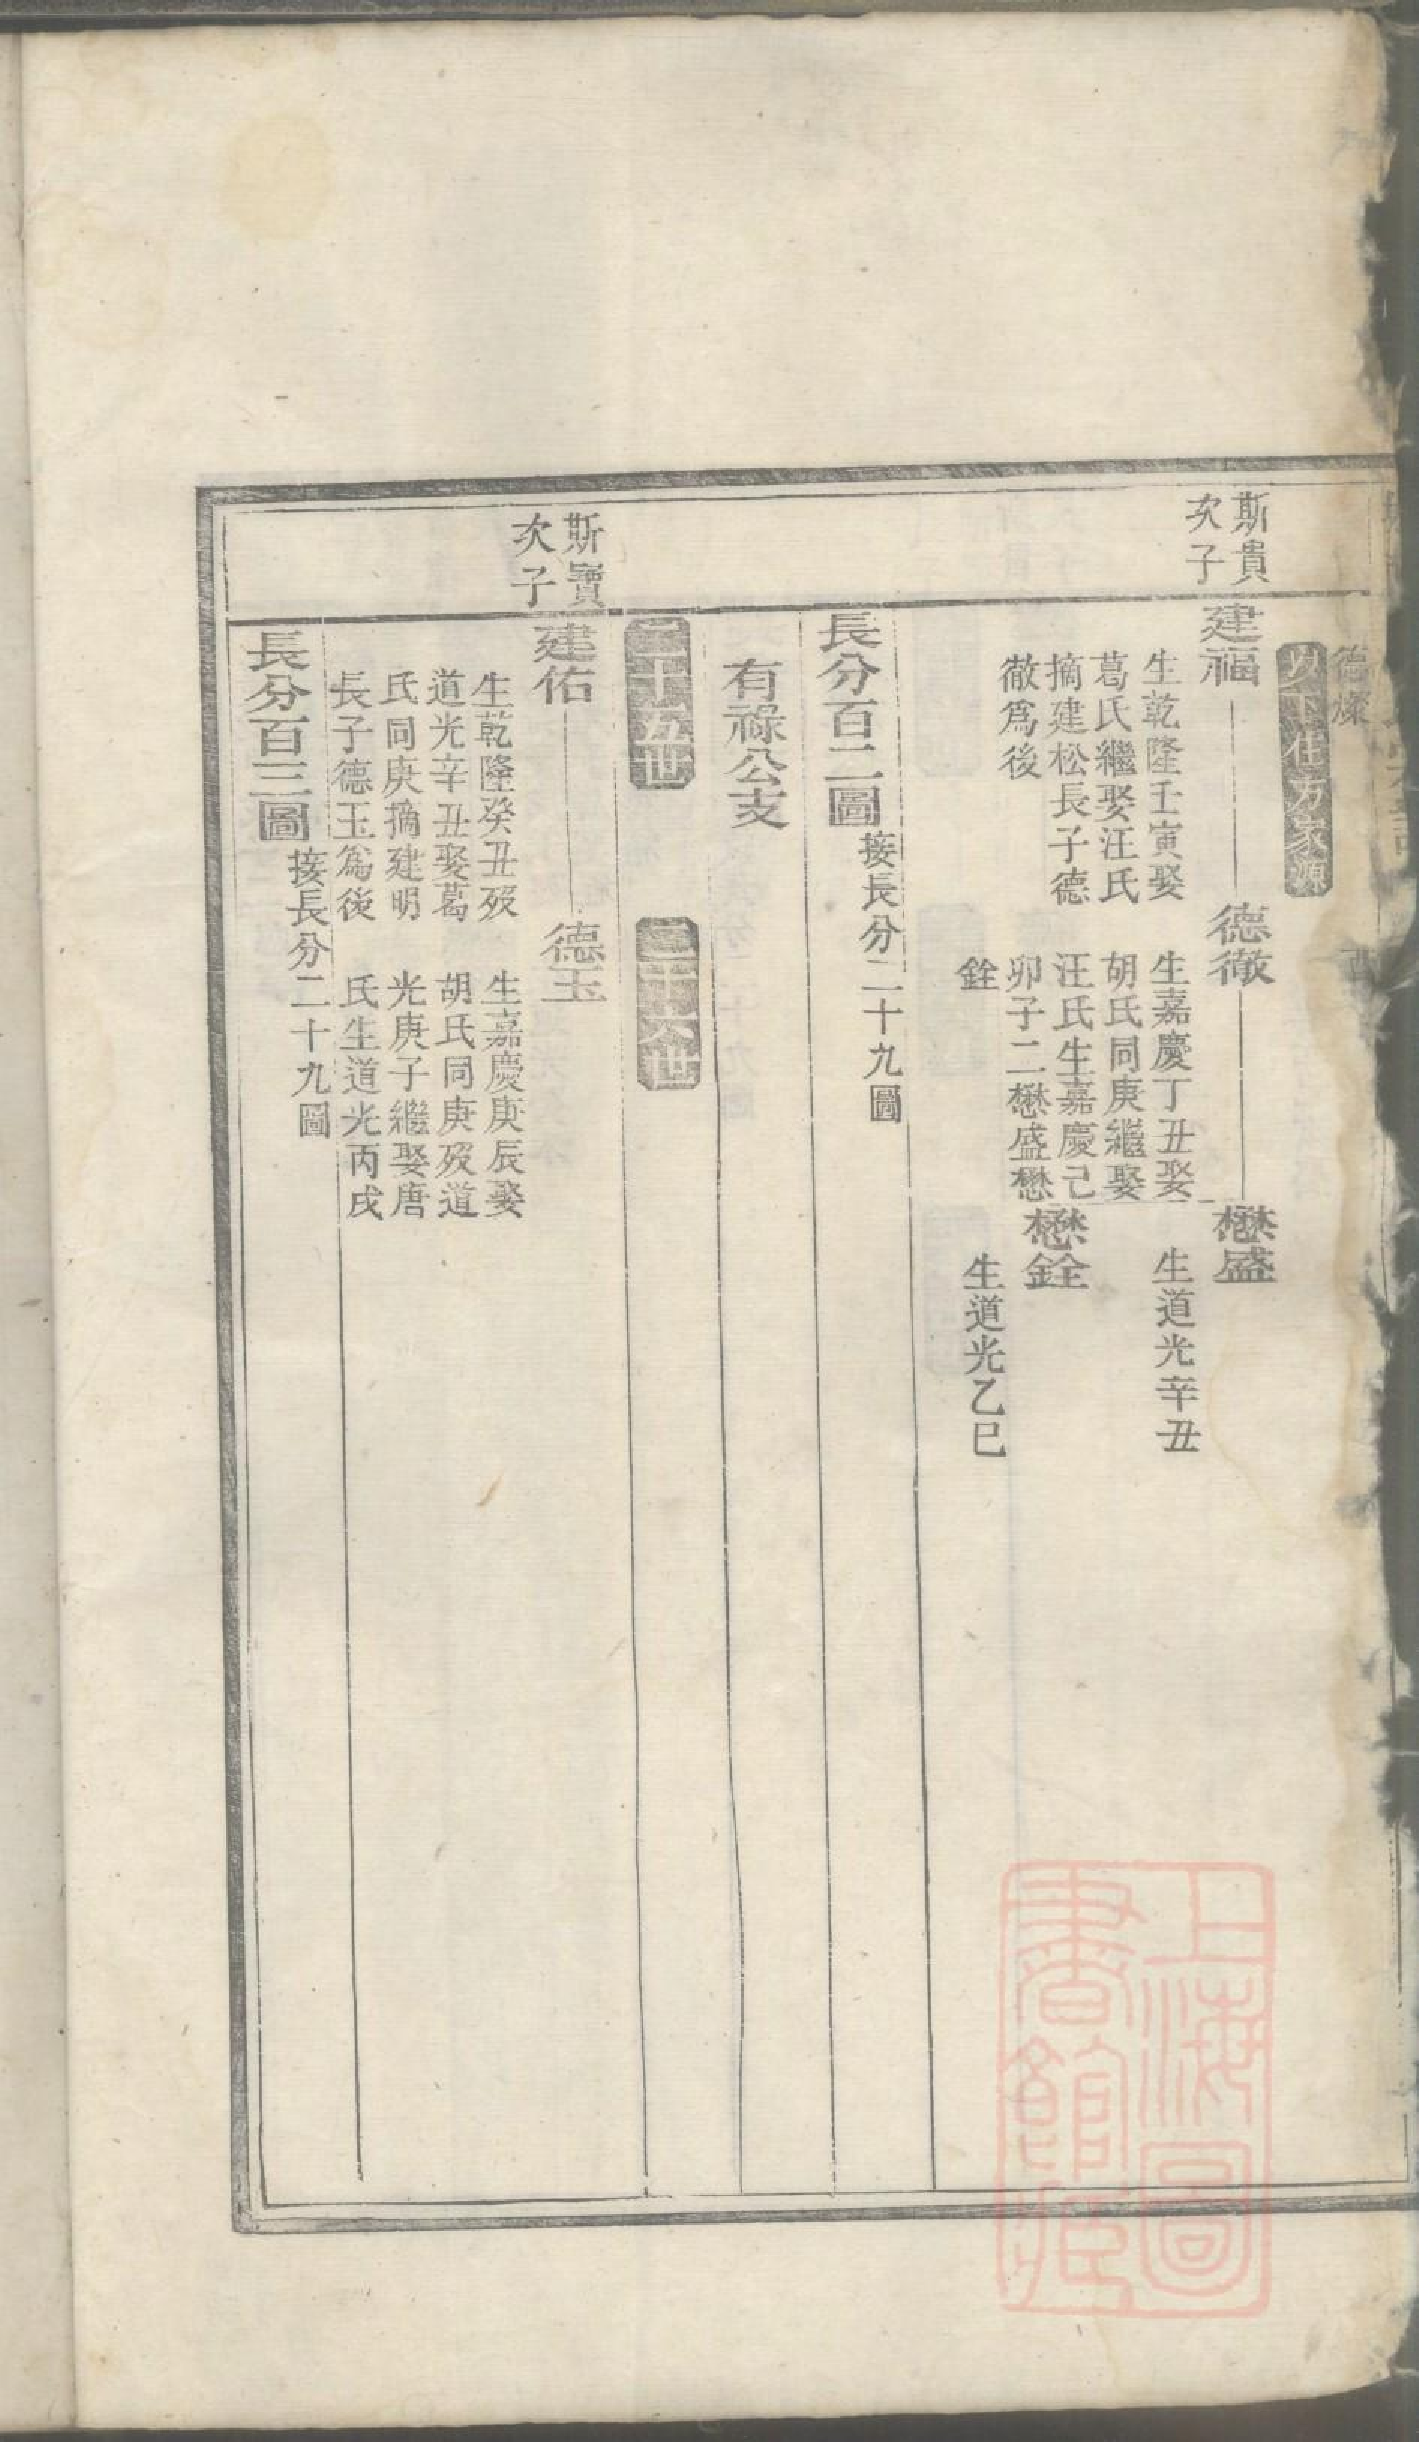 德燦
以下住方家源
斯貴
次子
建福
生乾隆壬寅娶
葛氏繼娶汪氏
摘建松長子德
徹爲後
德徹
生嘉慶丁丑娶
胡氏同庚繼娶
汪氏生嘉慶己
卯子二懋盛懋
銓
懋盛
生道光辛丑
懋銓
生道光乙巳
長分百二圖
接長分二十九圖
有祿公支
二十五世
二十六世
斯寶
次子
建佑
生乾隆癸丑歿
道光辛丑娶葛
氏同庚摘建明
長子德玉爲後
德玉
生嘉慶庚辰娶
胡氏同庚歿道
光庚子繼娶唐
氏生道光丙戌
長分百三圖
接長分二十九圖
上海圖
書館藏